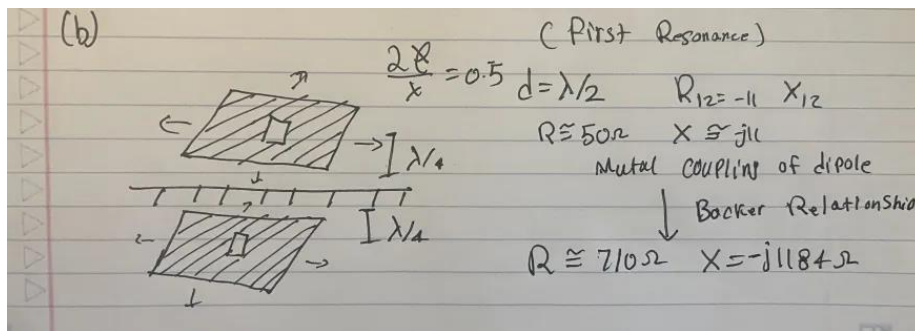 (b)
(First Resonance)
2ℓ/x = 0.5 d = λ/2 R12 = -11 X12
R ≅ 50Ω X ≅ j11
λ/4
Mutal coupling of dipole
Bocker Relationship
λ/4
R ≅ 710Ω X = -j1184Ω